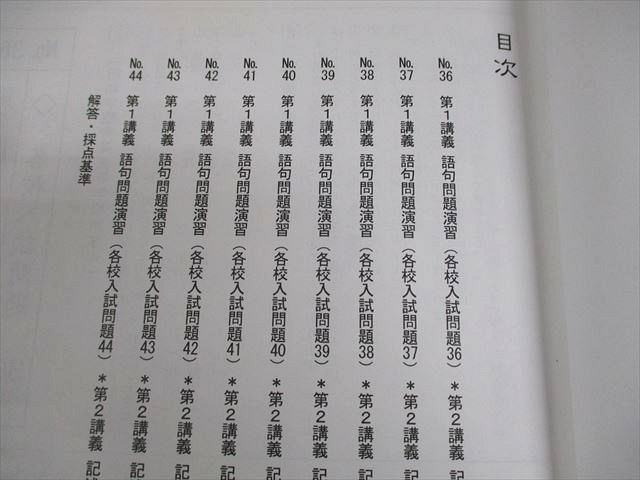 目次
No.36 第1講義 語句問題演習（各校入試問題36）＊第2講義 記
No.37 第1講義 語句問題演習（各校入試問題37）＊第2講義 記
No.38 第1講義 語句問題演習（各校入試問題38）＊第2講義 記
No.39 第1講義 語句問題演習（各校入試問題39）＊第2講義 記
No.40 第1講義 語句問題演習（各校入試問題40）＊第2講義 記
No.41 第1講義 語句問題演習（各校入試問題41）＊第2講義 記
No.42 第1講義 語句問題演習（各校入試問題42）＊第2講義 記
No.43 第1講義 語句問題演習（各校入試問題43）＊第2講義 記
No.44 第1講義 語句問題演習（各校入試問題44）＊第2講義 記述
解答・採点基準